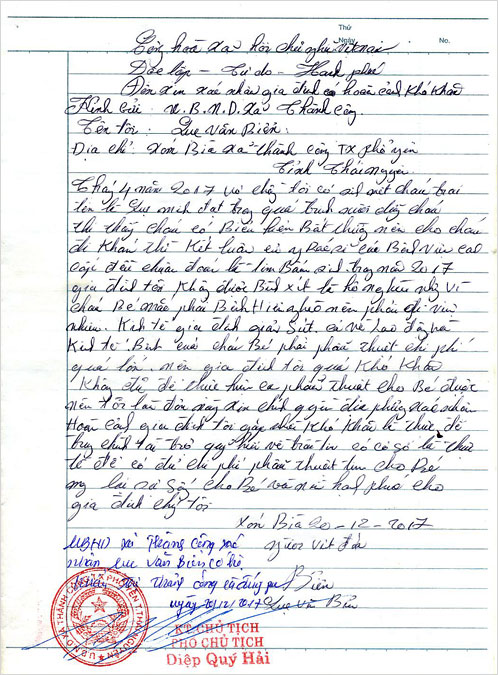 Thứ
Ngày
No.
Cộng hoà xã hội chủ nghĩa Việt nam
Độc lập - Tự do - Hạnh phúc
Đơn xin xác nhận gia đình có hoàn cảnh Khó Khăn
Kính gửi: U.B.N.D. xã Thành Công
Tên tôi: Lục Văn Biên:
Địa chỉ: Xóm Bìa xã thành công TX phổ yên
Tỉnh Thái nguyên
Tháng 4 năm 2017 vợ chồng tôi có sinh một cháu trai
tên là Lục minh đạt trong quá trình nuôi dưỡng cháu
thì thấy cháu có Biểu hiện Bất thường nên cho cháu
đi Khám thì Kết luận của Bác sĩ của Bệnh Viện
đều chuẩn đoán là tim Bẩm sinh trong năm 2017
gia đình tôi Không được Bình xét là hộ nghèo nhưng Vì
cháu Bé mắc phải Bệnh Hiểm nghèo nên phải đi viện
nhiều. Kinh tế gia đình giảm Sút cả về lao động và
Kinh tế. Bệnh của cháu Bé phải phẫu thuật chi phí
quá lớn. nên gia đình tôi quá Khó Khăn
Không đủ để ca phẫu thuật cho Bé được
nên tôi làm đơn này xin chính quyền địa phương xác nhận
Hoàn cảnh gia đình tôi gặp phải Khó Khăn là thực để
trình quỹ có cơ sở là thực
tế để có đủ chi phí phẫu thuật tim cho Bé
lại sự Sống cho Bé và hạnh phúc cho
gia đình chúng tôi
Xóm Bìa 20-12-2017
UBND xã Thành Công xác người viết đơn
nhận Lục Văn Biên có hộ
Thành Công là đúng Biên
ngày 20/12/2017 Lục Văn Biên
KT. CHỦ TỊCH
PHÓ CHỦ TỊCH
Diệp Quý Hải